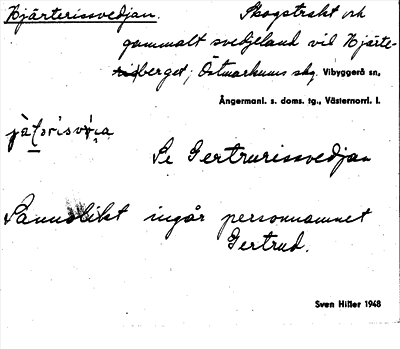 Hjärterissvedjan. Skogstrakt och
gammalt svedjeland vid Hjärte-
risberget, Östmarkums skg. Vibyggerå sn,
Ångermanl. s. doms. tg., Västernorrl. l.
Se Gertrurissvedjan
Sannolikt ingår personnamnet
Gertrud.
Sven Hitier 1948